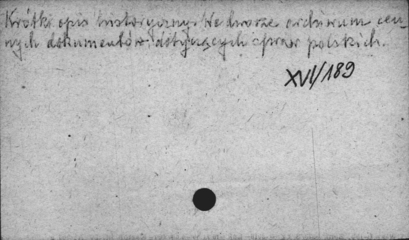 Krótki opis historyczny. We dworze archiwum cen-
nych dokumentów dotyczących spraw polskich.
XVI/189